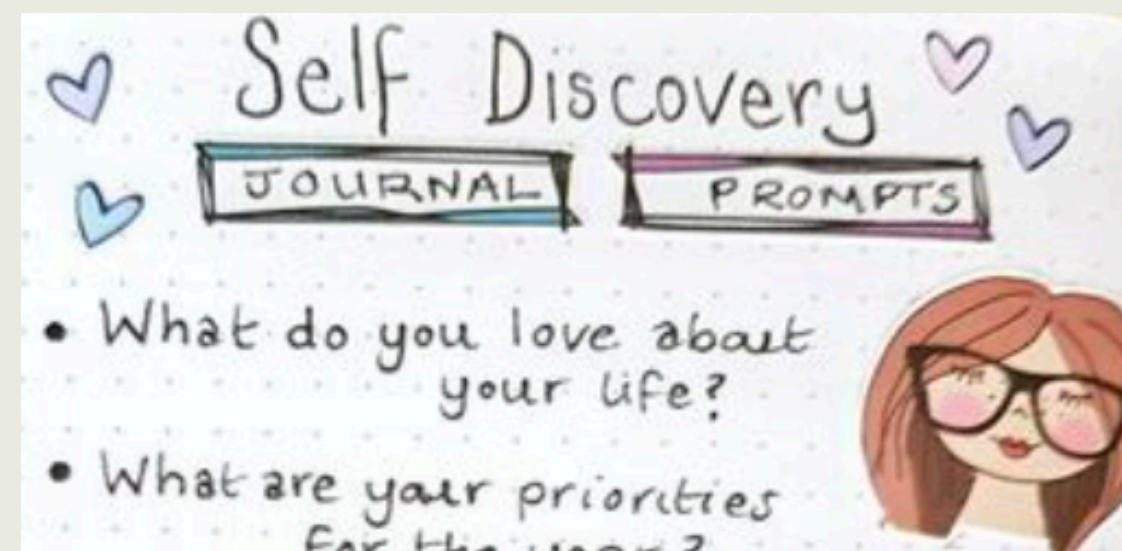 Self Discovery
JOURNAL PROMPTS
• What do you love about
your life?
• What are your priorities
for the year?